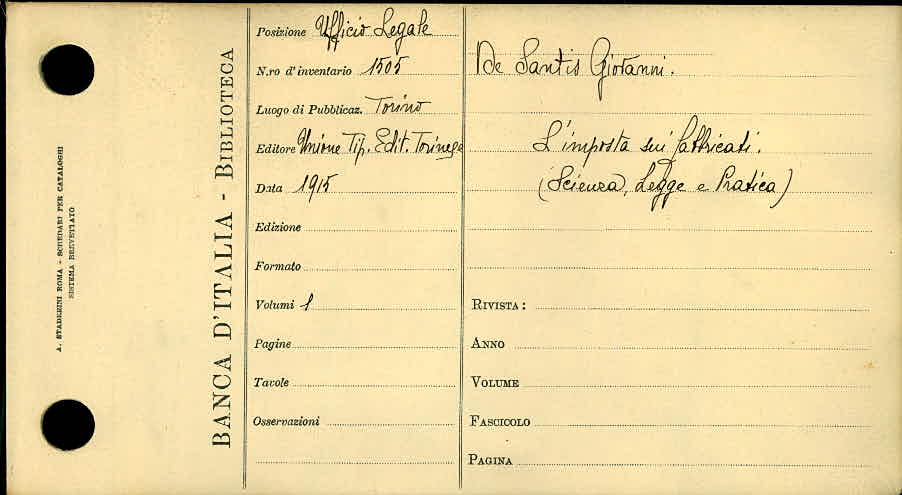 A. STADERINI ROMA - SCHEDARI PER CATALOGHI
SISTEMA BREVETTATO
BANCA D'ITALIA - BIBLIOTECA
Posizione Ufficio Legale
N.ro d'inventario 1505
Luogo di Pubblicaz. Torino
Editore Unione Tip. Edit. Torinese
Data 1915
Edizione
Formato
Volumi 1
Pagine
Tavole
Osservazioni
De Santis Giovanni.
L'imposta sui fabbricati.
(Scienza, Legge e Pratica)
RIVISTA:
ANNO
VOLUME
FASCICOLO
PAGINA